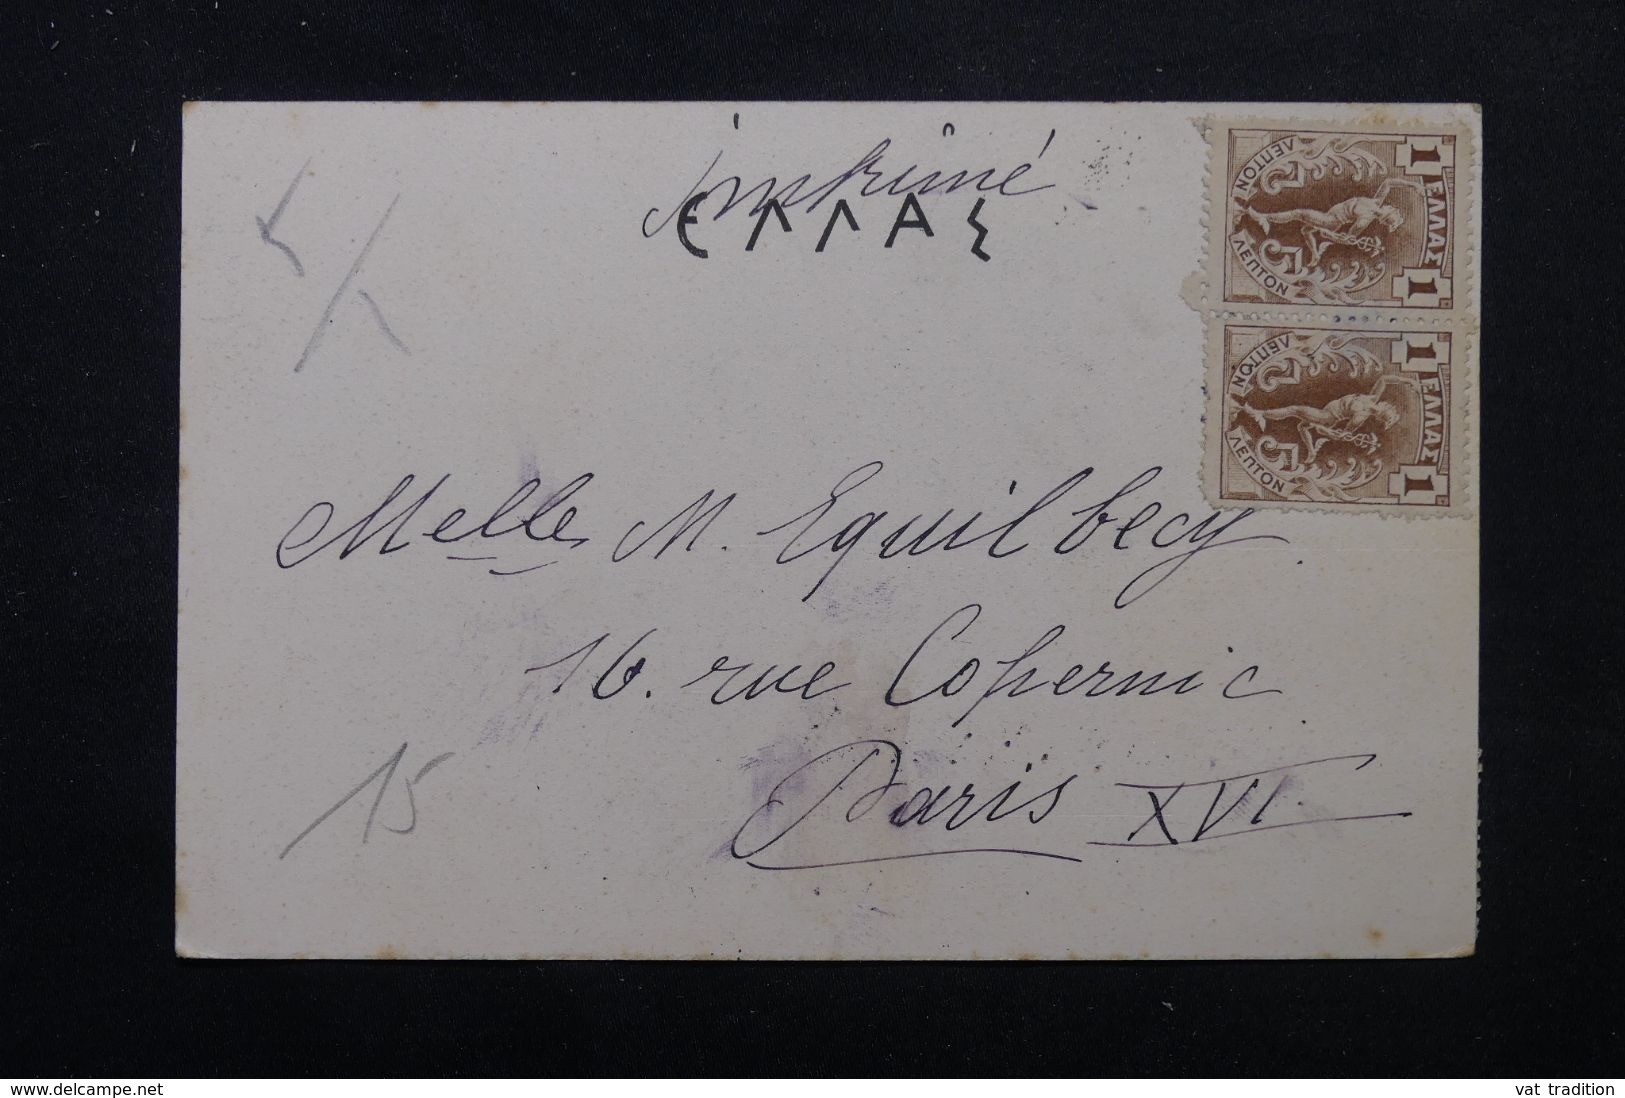 imprimé
ΕΛΛΑΣ
1 ΕΛΛΑΣ 1
ΛΕΠΤΟΝ ΛΕΠΤΟΝ
1 ΕΛΛΑΣ 1
ΛΕΠΤΟΝ ΛΕΠΤΟΝ
Melle M. Equilbecy.
16. rue Copernic
Paris XVI.
15
www.delcampe.net
vat tradition